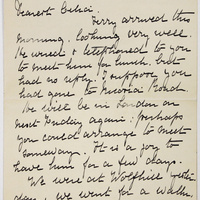 Dearest Celia.
Terry arrived this
morning, looking very well.
We wired & telephoned to you
to meet him for lunch, but
had no reply. I suppose you
had gone to Victoria Road.
We will be in London on
next Friday again: perhaps
you could arrange to meet
someway. It is a joy to
have him for a few days.
We were at yester
day, we went for a walk.